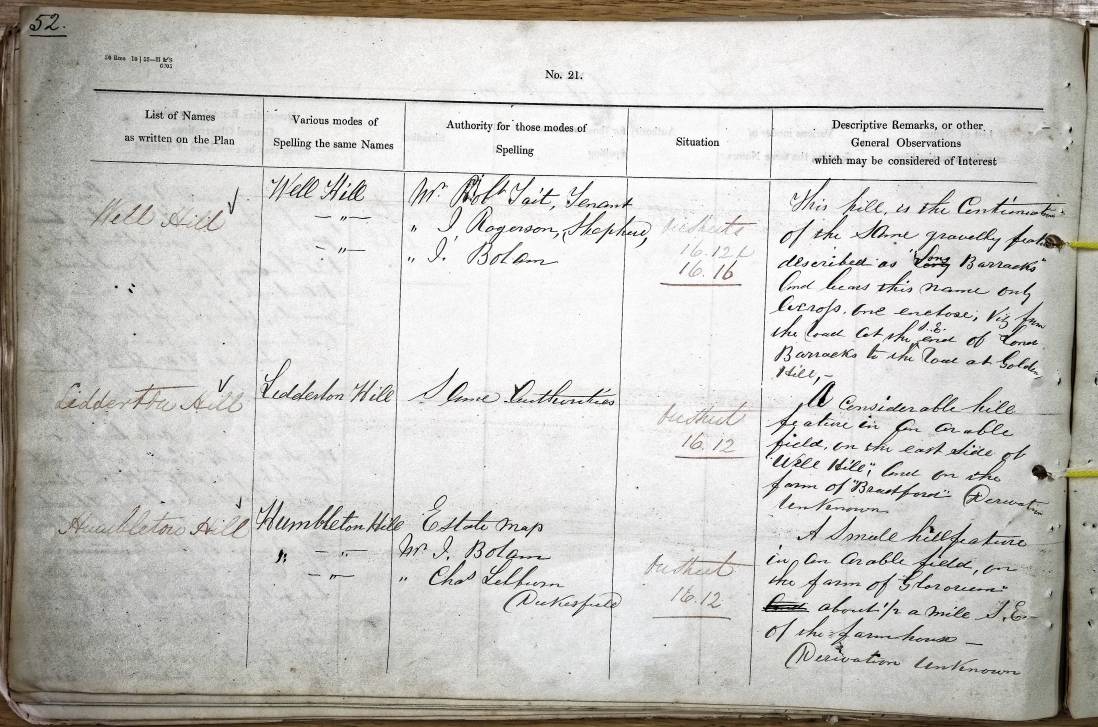 52.
No. 21.
List of Names
as written on the Plan
Various modes of
Spelling the same Names
Authority for those modes of
Spelling
Situation
Descriptive Remarks, or other
General Observations
which may be considered of Interest
Well Hill
Well Hill
— " —
— " —
Mr. Robt Tait, Tenant
" J Rogerson, Shepherd,
" J. Bolam
On sheets
16.12 &
16.16
This hill, is the Continuation
of the Same gravelly feature
described as "Long Barracks"
And bears this name only
Across, one enclose, Viz from
the road at the S.E. end of Long
Barracks to the road at Golden
Hill,-
Ledderton Hill
Same Authorities
On sheet
16.12
A Considerable hill
feature in an arable
field, on the east side of
"Well Hill"; And on the
farm of "Bradford" Derivation
Unknown
Humbleton Hill
Humbleton Hill
" — " —
— " —
Estate Map
Mr J. Bolam
" Chas Lilburn
Dukesfield
On sheet
16.12
A Small hill feature
in an arable field, on
the farm of Glororum
about 1/2 a mile S.E.
of the farm house —
Derivation Unknown